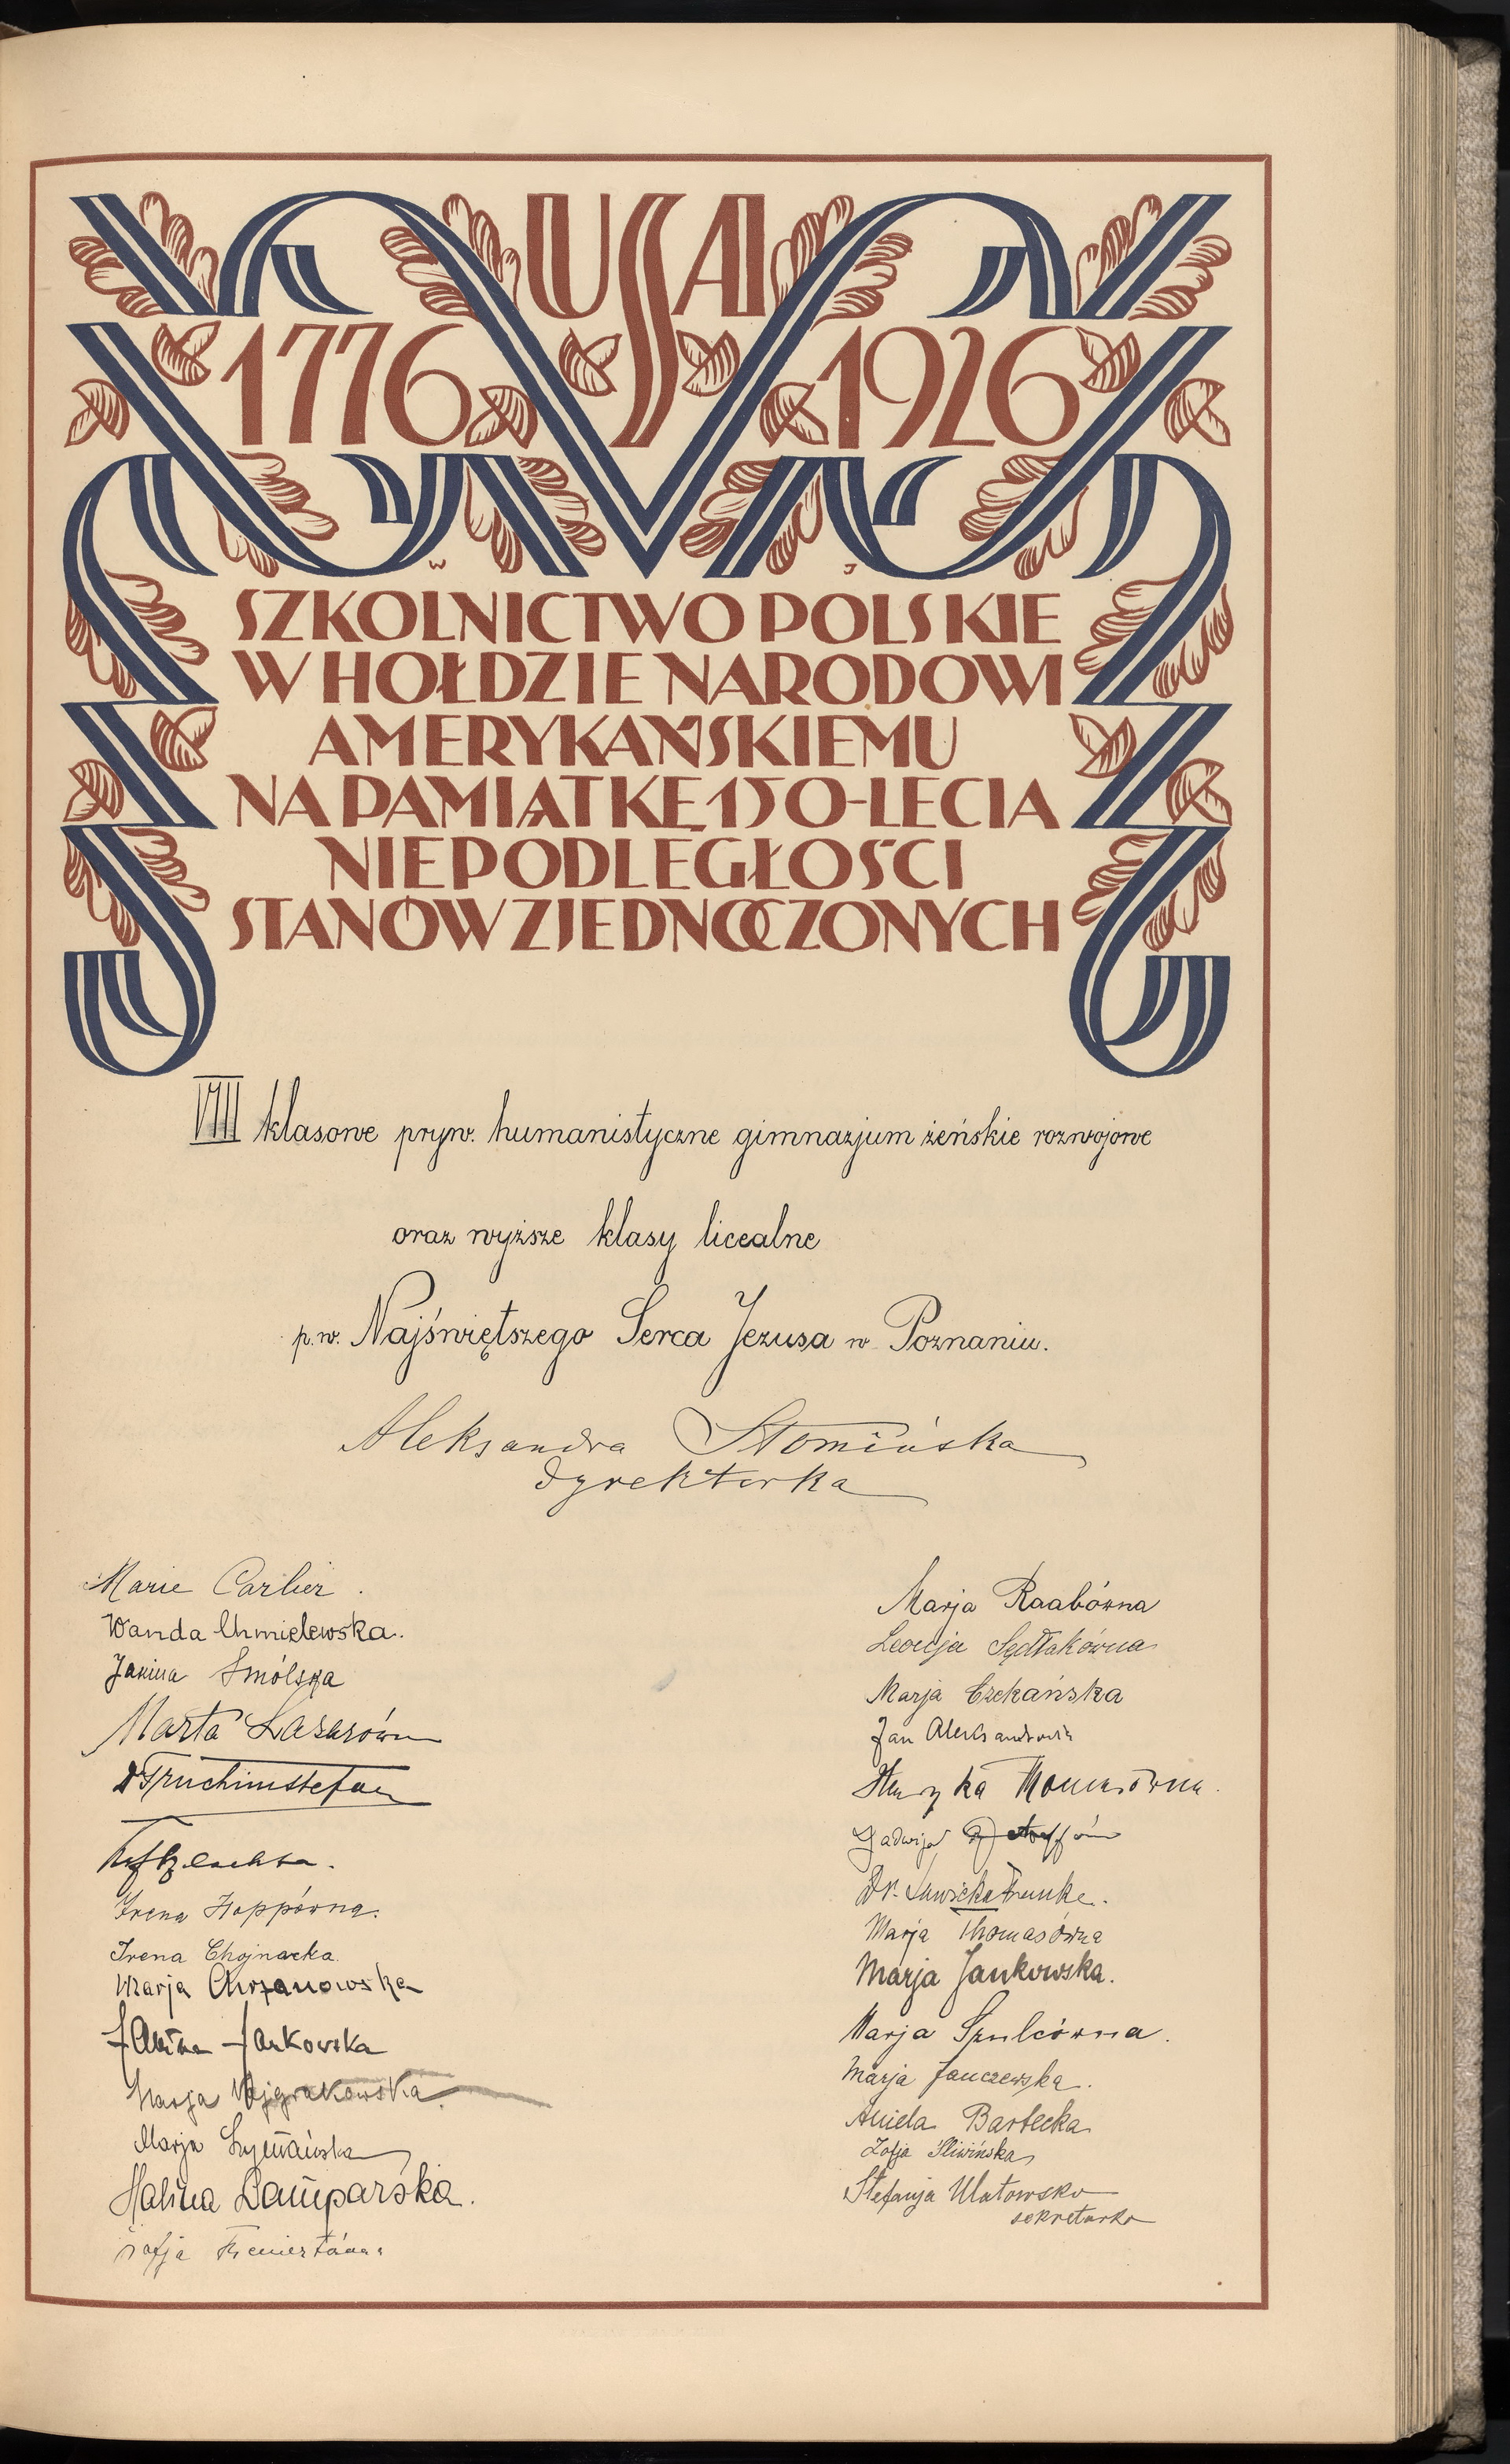 USA
1776 1926
W J
SZKOLNICTWO POLSKIE
W HOŁDZIE NARODOWI
AMERYKAŃSKIEMU
NA PAMIĄTKĘ 150-LECIA
NIEPODLEGŁOŚCI
STANÓW ZJEDNOCZONYCH
VIII klasowe pryw. humanistyczne gimnazjum żeńskie rozwojowe
oraz wyższe klasy licealne
p.w. Najświętszego Serca Jezusa w Poznaniu.
Aleksandra Słomińska
dyrektorka
Marie Carlier.
Wanda Chmielewska.
Janina Smólska
Marta
Irena Hoppówna.
Irena Chojnacka
Marja Chrzanowska
Janina Jankowska
Marja
Marja Szymańska
Halina Lamparska.
Zofja
Marja Raabówna
Leonja Sędłakówna
Marja Czekańska
Jan
Jadwiga
Dr. Sawicka Funke.
Marja Thomasówna
Marja Jankowska.
Marja Szulcówna.
Marja Janczewska.
Aniela Bartecka
Zofja Śliwińska
Stefanja Ulatowska
sekretarka